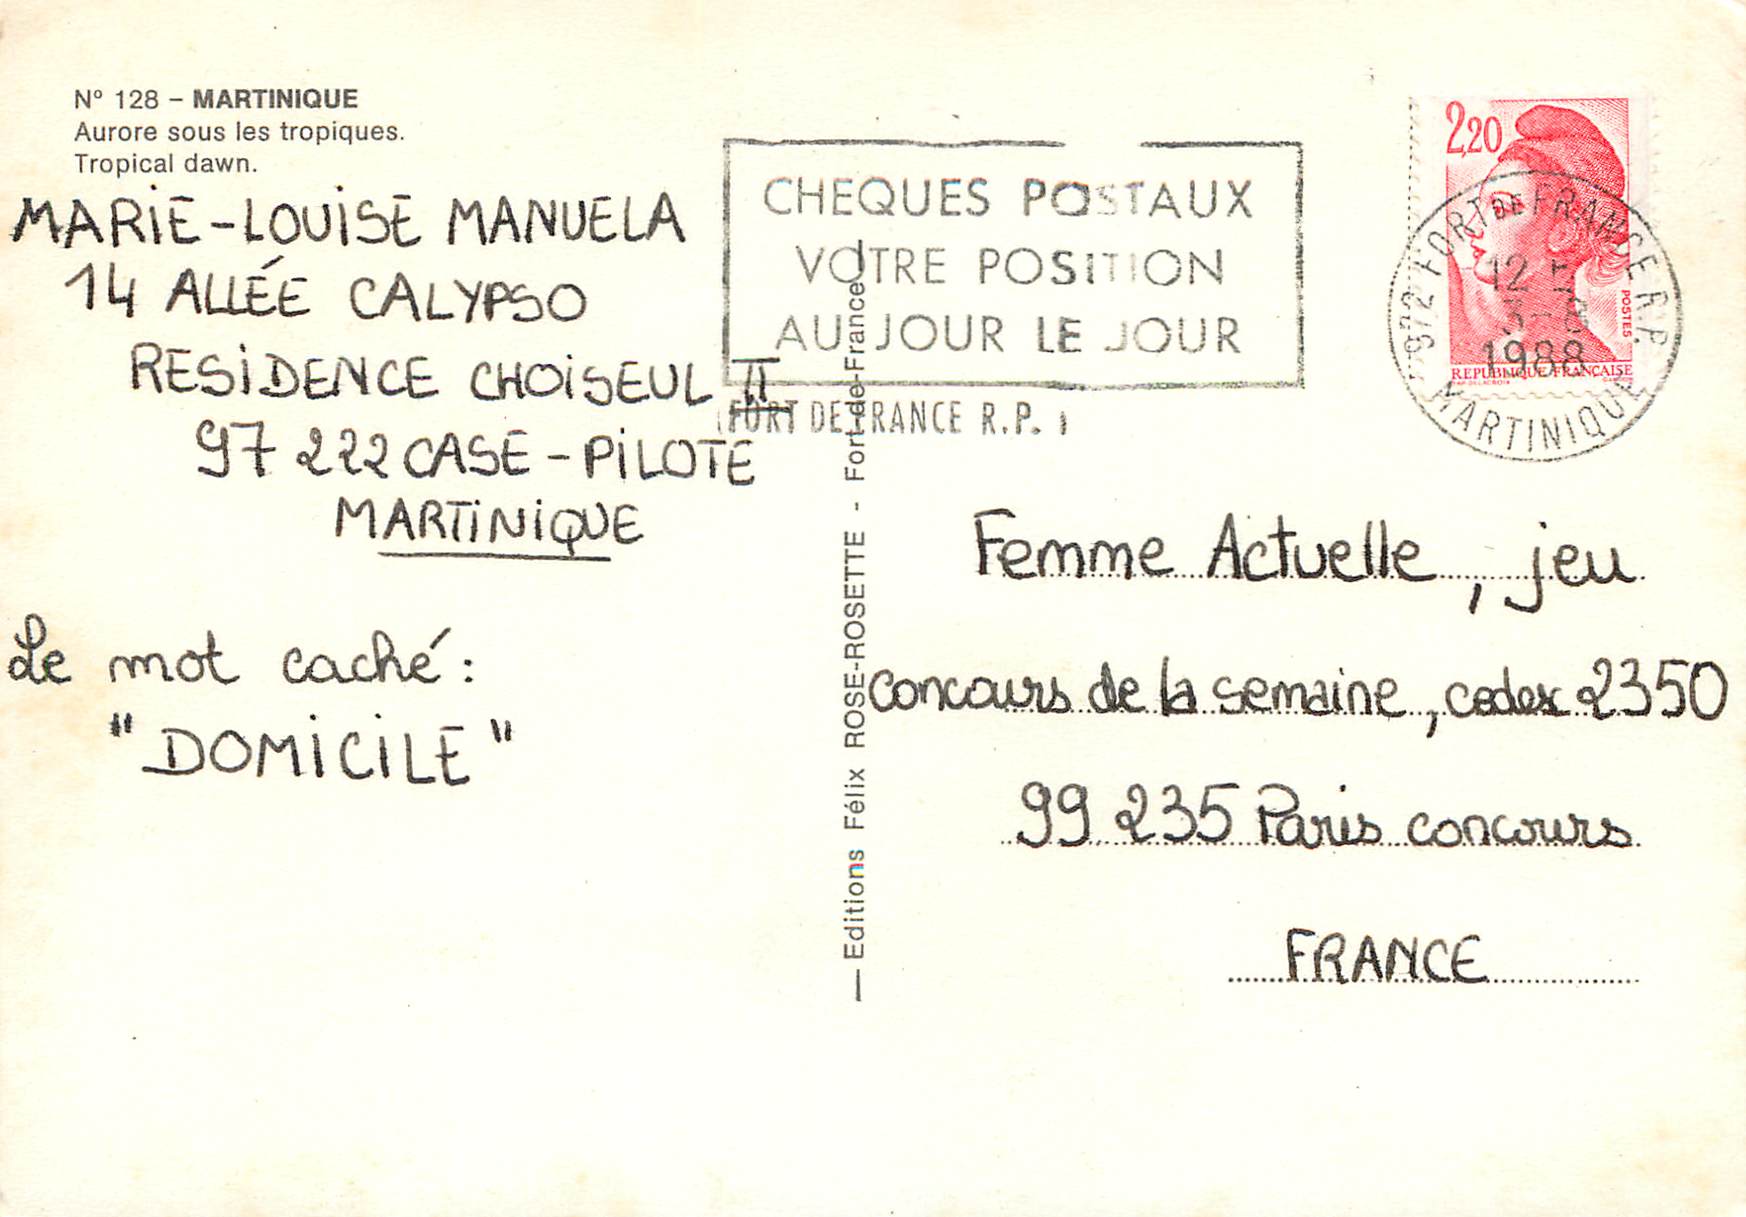 N° 128 – MARTINIQUE
Aurore sous les tropiques.
Tropical dawn.
MARIE-LOUISE MANUELA
14 ALLÉE CALYPSO
RESIDENCE CHOISEUL II
97 222 CASE-PILOTE
MARTINIQUE
Le mot caché:
"DOMICILE"
Editions Félix ROSE-ROSETTE - Fort-de-France
CHEQUES POSTAUX
VOTRE POSITION
AU JOUR LE JOUR
FORT DE FRANCE R.P.
2,20
POSTES
REPUBLIQUE FRANÇAISE
972 FORT DE FRANCE R.P.
12 H
1988
MARTINIQUE
Femme Actuelle, jeu
concours de la semaine, cedex 2350
99 235 Paris concours
FRANCE